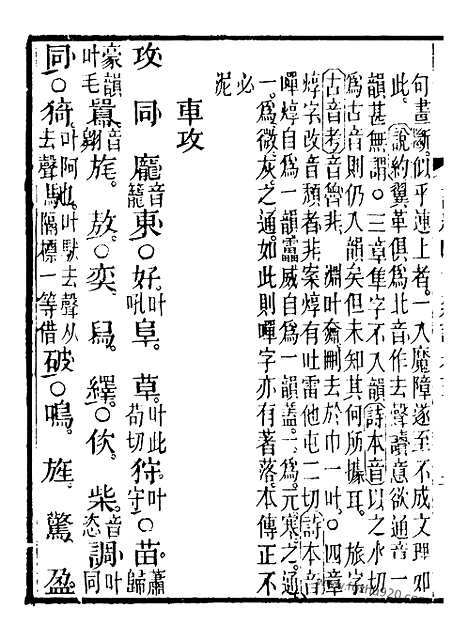 句晝斷似乎連上者一入魔障遂至不成文理如
此。說約翼革俱爲此音作去聲讀意欲通音一
韻甚無謂。○三章隼字不入韻詩本音以之水切
爲古音則仍入韻矣但未知其何所據耳 旅字
古音考音魯非 淵叶 刪去於巾一叶。○四章
焞字改音頽者非案焞有吐雷他屯二切詩本音
嘽焞自爲一韻靁威自爲一韻蓋一爲元寒之通
一爲微灰之通如此則嘽字亦有著落本傳正不
必
泥
車攻
攻 同 龐音籠 東○好叶吼 阜。草叶此苟切 狩叶守○苗蕭歸
豪韻叶毛 囂音翱 旄。敖○奕 舄。繹○佽 柴音恣 調叶同
同○猗叶阿去聲 馳叶馱去聲從隔標一等借 破○鳴。旌 驚 盈